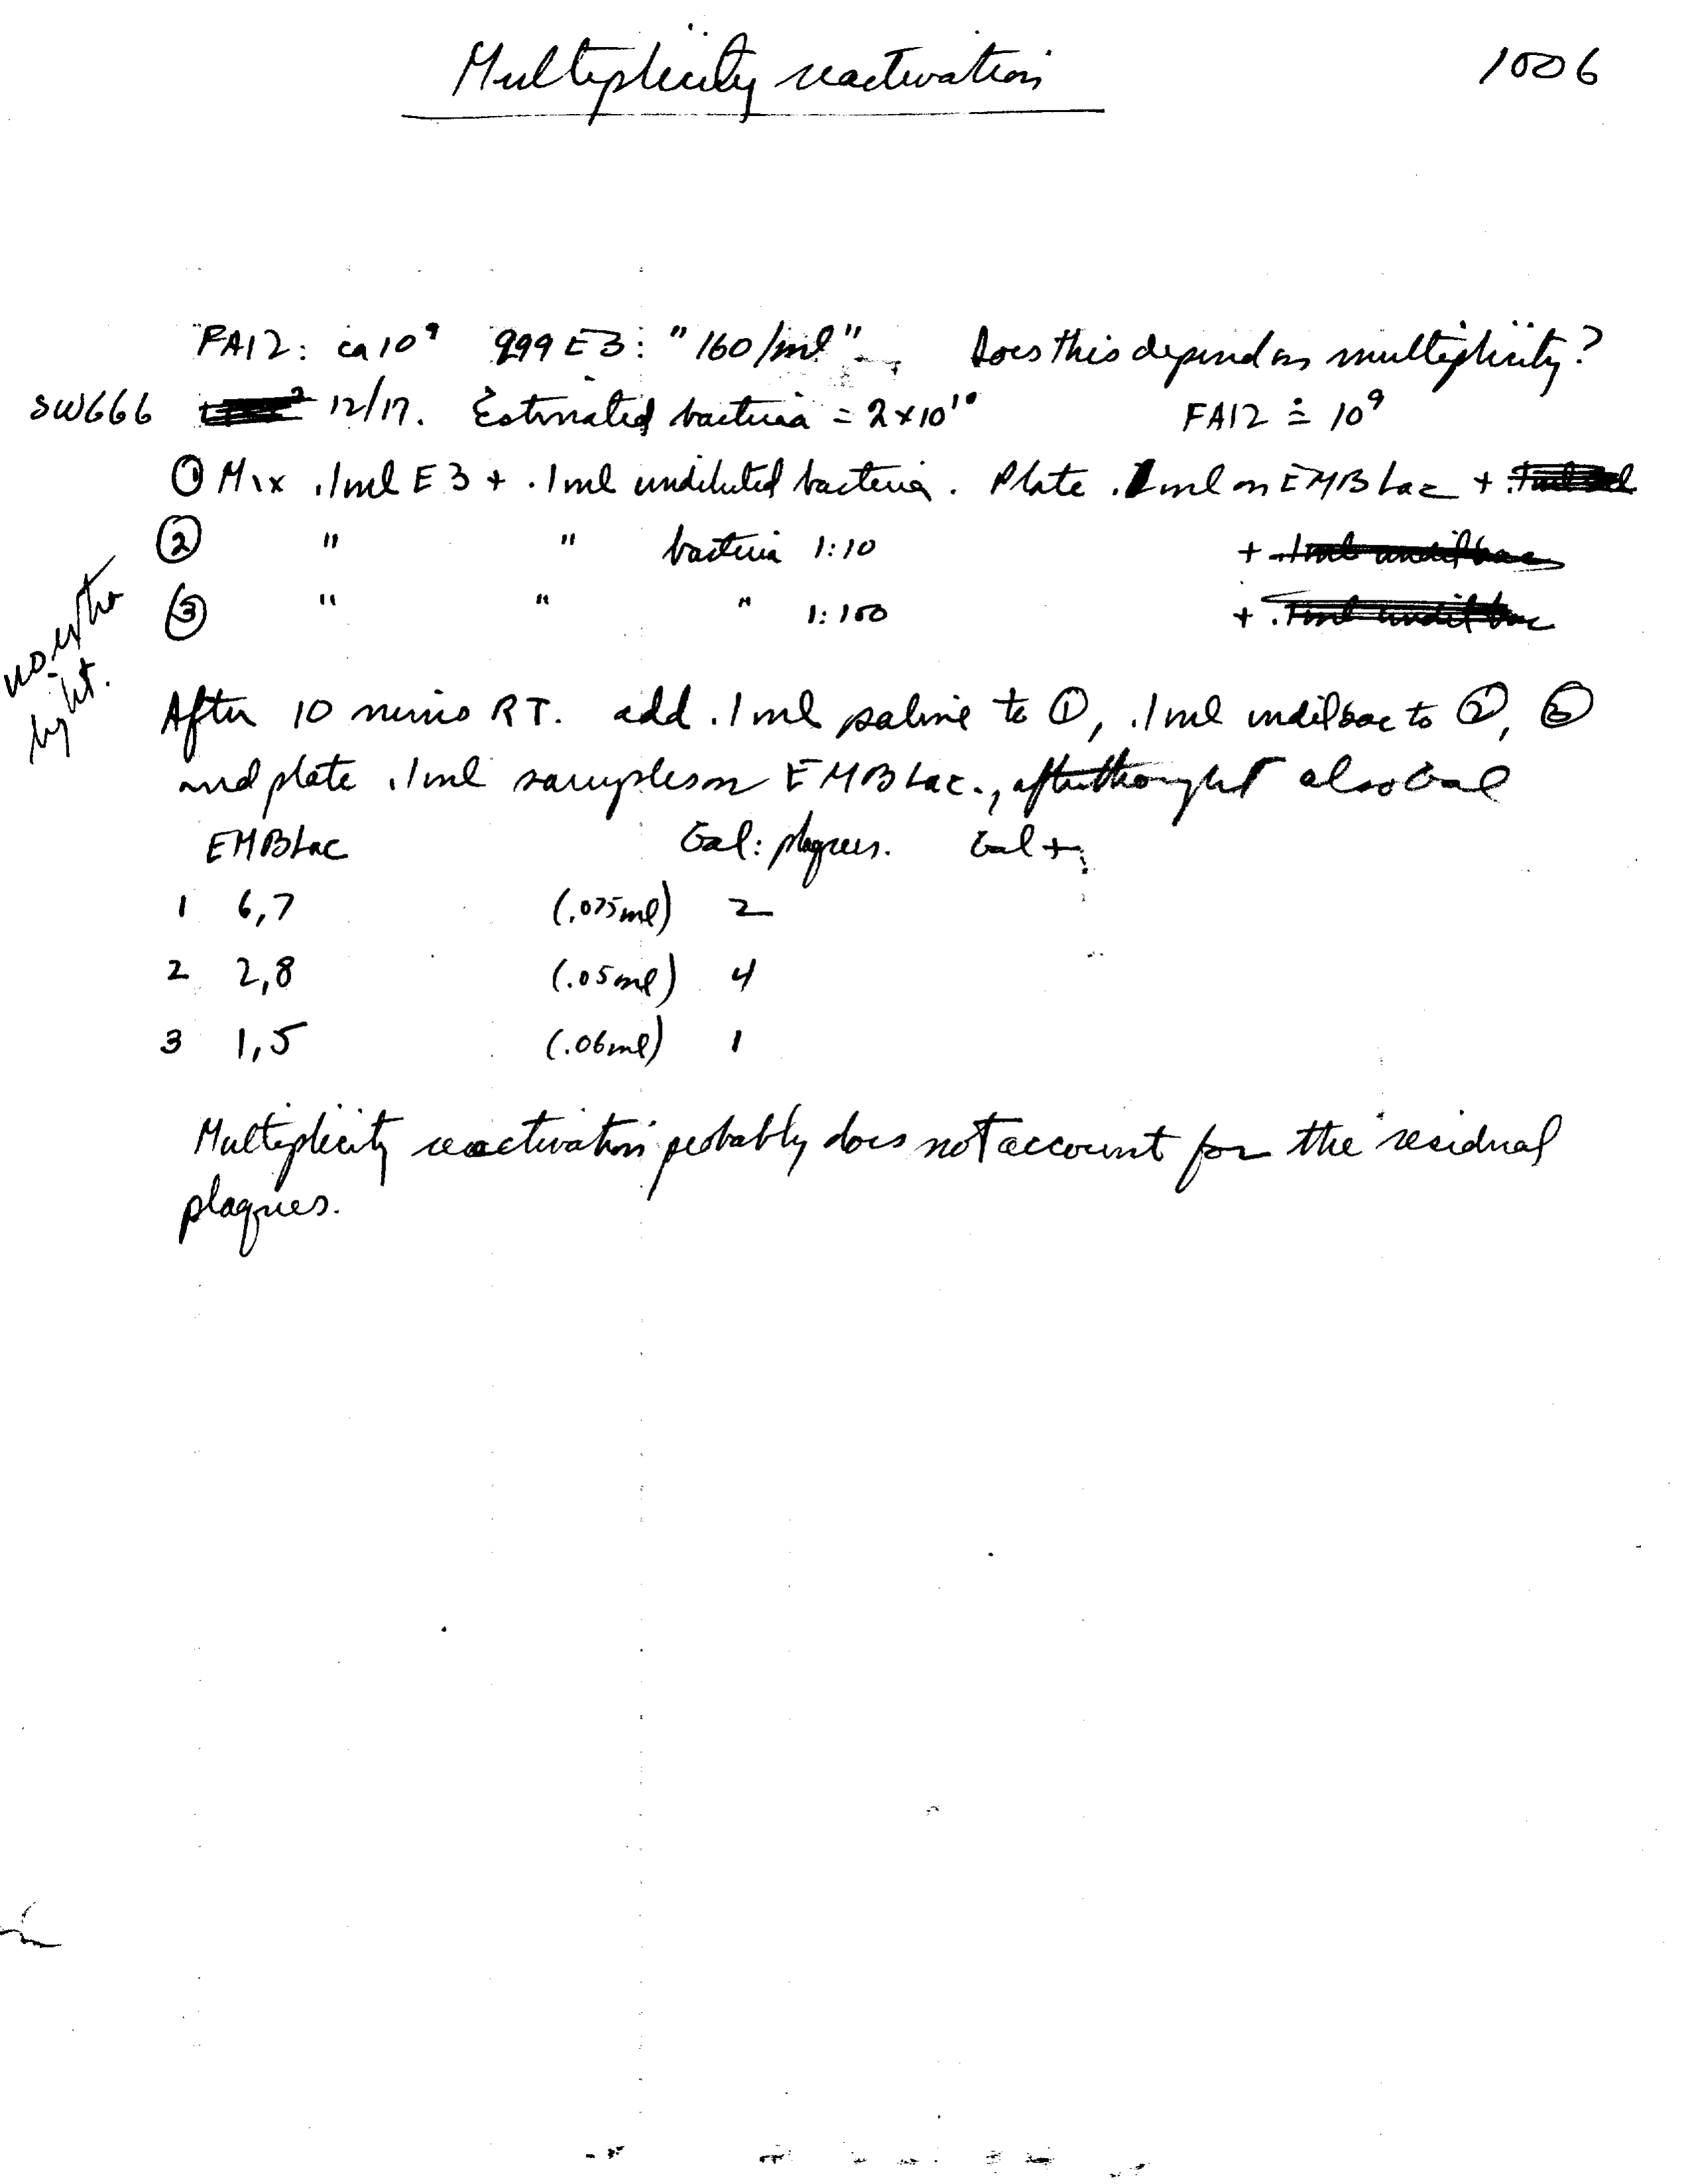 Multiplicity reactivation 1006
FA12: ca 10⁹ 999 E3: "160/ml" Does this depend on multiplicity?
SW666 12/17. Estimated bacteria = 2 x 10¹⁰ FA12 ≐ 10⁹
① Mix .1ml E3 + .1ml undiluted bacteria. Plate .1ml on EMB Lac +
② " " bacteria 1:10 + .1ml undil bac
③ " " " 1:100 + .1ml undil bac
no extra
light.
After 10 mins RT. add .1ml saline to ①, .1ml undil bac to ②, ③
and plate .1ml samples on EMB Lac., afterthought also Gal
EMB Lac Gal: plaques. Gal +
1 6,7 (.075ml) 2
2 2,8 (.05ml) 4
3 1,5 (.06ml) 1
Multiplicity reactivation probably does not account for the residual
plaques.